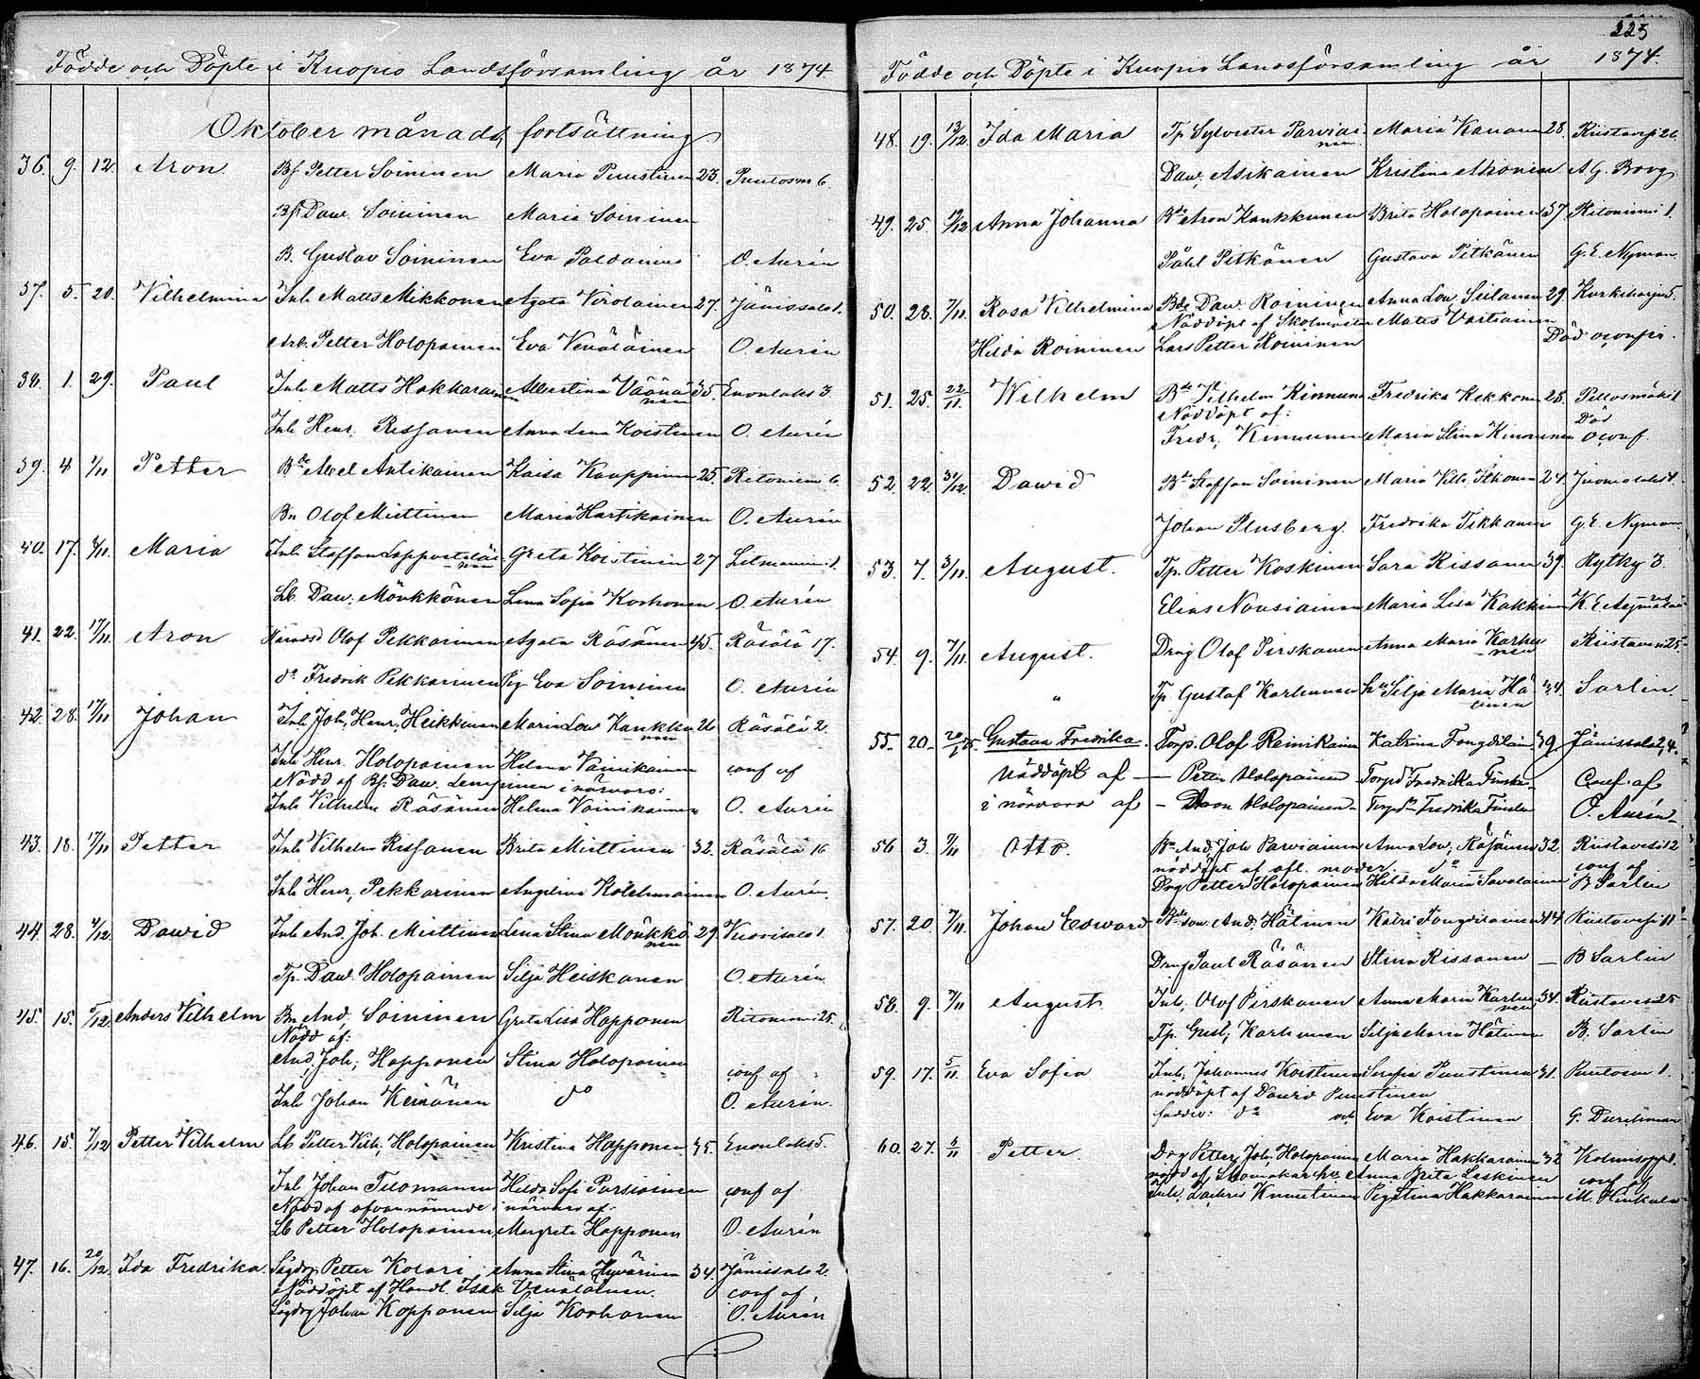 Födde och Döpte i Kuopio Landsförsamling år 1874
Oktober månads fortsättning
36. 9. 12. Aron. Bf Petter Soininen Maria Puustinen 23. Puutosm 6.
Bf Daw. Soininen Maria Soininen
B. Gustav Soininen Eva Paldanius O. Aurén
37. 5. 20. Vilhelmina Inh. Matts Mikkonen Agata Virolainen 27. Jänissalo 1.
Arb. Petter Holopainen Eva Venäläinen O. Aurén
38. 1. 29. Paul Inh. Matts Hakkarainen Albertina Väänänen 35. Enonlaks 3
Inh. Henr. Rissanen Anna Lena Koistinen O. Aurén
39. 4 1/11 Petter Bde Axel Antikainen Kaisa Kauppinen 25. Ritoniem 6.
Bn Olof Miettinen Maria Hartikainen O. Aurén
40. 17. 8/11. Maria Inh. Staffan Lappveteläinen Greta Koistinen 27 Litmaniemi 1.
Lb. Daw. Mönkkönen Lena Sofia Korhonen O. Aurén
41. 22. 17/11. Aron Olof Pekkarinen Agata Räsänen 45. Räsälä 17.
do Fredrik Pekkarinen Pig Eva Soininen O. Aurén
42. 28. 17/11 Johan Inh. Joh. Henr. Heikkinen Maria Lov. Kaukkanen 26 Räsälä 2.
Inh Henr. Holopainen Helena Vainikainen conf af
Nödd af Bf. Daw. i närvaro:
Inh Vilhelm Räsänen Helena Vainikainen O. Aurén
43. 18. 17/11 Petter Inh Vilhelm Rissanen Brita Miettinen 32. Räsälä 16
Inh Henr. Pekkarinen Angelina Kolehmainen O. Aurén.
44. 28. 4/12. Dawid Inh And. Joh. Miettinen Lena Stina Mönkkönen 29. Vuorisalo 1.
Tp. Daw. Holopainen Silja Heiskanen O. Aurén
45. 15. 5/12. Anders Vilhelm Bn And. Soininen Greta Lisa Happonen Ritoniemi 25.
Nödd af:
And. Joh. Happonen Stina Holopainen conf af
Inh Johan Keinänen do O. Aurén.
46. 15. 7/12 Petter Vilhelm Lb. Petter Vilh. Holopainen Kristina Happonen 35. Enonlaks 5.
Inh Johan Tuomainen Hilda Sofi Parsiainen conf af
Nödd af ofvannämnde i närvaro af
Lb Petter Holopainen Margreta Happonen O. Aurén
47. 16. 20/12. Ida Fredrika. Sågdrg Petter Kolari Anna Stina Hyvärinen 34. Jänissalo 2.
Nöddöpt af Handl. Isak Venäläinen. conf af
Sågdrg Johan Kopponen Silja Korhonen O. Aurén
225
Födde och Döpte i Kuopio Landsförsamling år 1874.
48. 19. 13/12. Ida Maria Tp Sylvester Parviainen Maria Kananen 28. Riistavesi 26
Daw. Asikainen Kristina Ahonen A G. Borg
49. 25. Anna Johanna Bde Aron Kaukkunen Brita Holopainen 37. Ritoniemi 1.
Påhl Pitkänen Gustava Pitkänen G. E. Nyman.
50. 28. 7/11. Rosa Vilhelmina Bde Daw. Roininen Anna Lov. Siilanen 29. Kurkiharju 5.
Nöddöpt af Skolmästar Matts Vartiainen
Hilda Roininen Lars Petter Roininen Död oconfir.
51. 25. 22/11. Wilhelm Bde Vilhelm Kinnunen Fredrika Kekkonen 28. Pellosmäki 1
Nöddöpt af: Död
Fredr. Kinnunen Maria Stina Kinnunen oconf.
52. 22. 31/12. Dawid Bde Staffan Soininen Maria Vilh. Itkonen 24. 4.
Johan Plusberg. Fredrika Tikkanen G. E. Nyman
53. 7. 3/11. August. Tp. Petter Koskinen Sara Rissanen 39. Rytky 3.
Elias Nousiainen Maria Lisa Kokkinen K. E.
54. 9. 7/11. August. Drng Olof Pirskanen Anna Maria Karhunen Riistavesi 25.
" Tp. Gustaf Karhunen hu Silja Maria Hätinen 34. Sarlin
55. 20. 20/1 75. Gustava Fredrika. Torp. Olof Reinikainen Katrina Tengdilain 39 Jänissalo 2, 4.
Nöddöpt af — Petter Holopainen Torpd Fredrika Finska Conf af
i närvara af — Aron Holopainen Torpdr Fredrika Finska O. Aurén
56 3. 7/11 Otto. Bn And. Joh. Parviainen Anna Lov. Räsänen 32. Riistavesi 12
nöddöpt af afl. moder do conf af
Drg Petter Holopainen Hilda Maria Savolainen B Sarlin
57. 20. 7/11. Johan Edward Bde son And. Hätinen Katri Tengdilainen 44. Riistavesi 11
Drng Paul Räsänen Stina Rissanen — B Sarlin
58. 9. 7/11 August Inh. Olof Pirskanen Anna Maria Karhunen 34. Riistavesi 25
Tp. Gust. Karhunen Silja Maria Hätinen B. Sarlin
59. 17. 5/11 Eva Sofia Inh. Johannes Koistinen Serafia Puustinen 31. Puutosm 1.
nöddöpt af Dawid Puustinen
fadder: do och Eva Koistinen G. Durchman
60. 27. 6/11 Petter. Drg Petter Joh. Holopainen Maria Hakkarainen 32 Kolmisoppi 1.
nödd af Anna Brita Laskinen conf af
Inh. Zachris Knuutinen Pig Stina Hakkarainen M. Hinkula